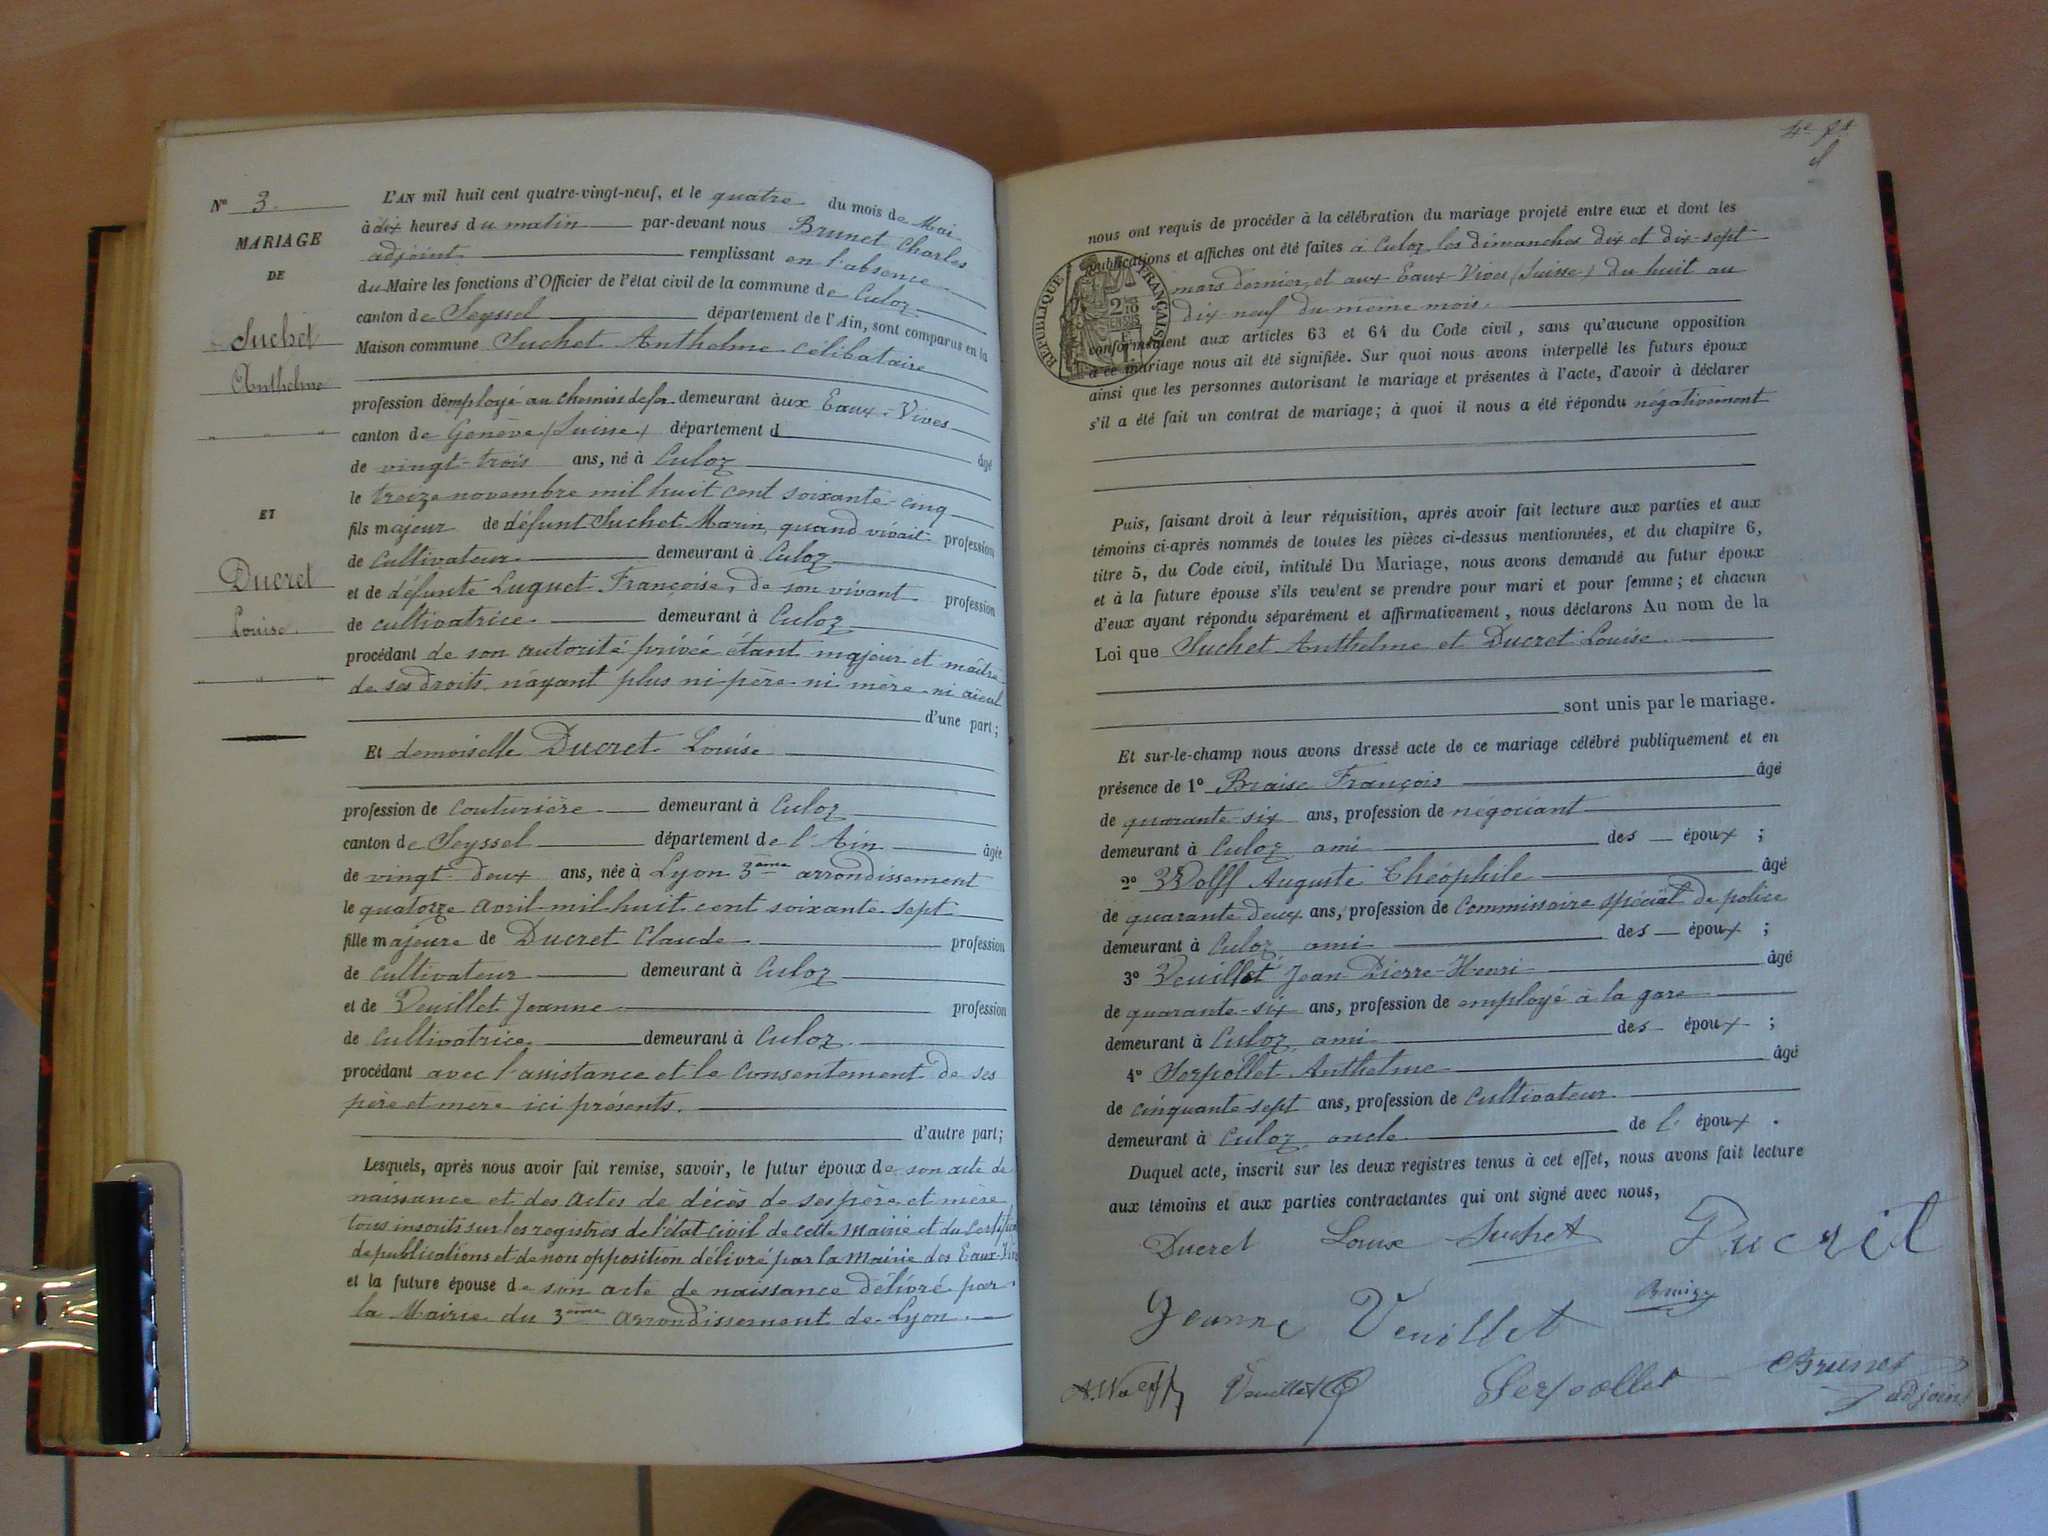 N° 3.
MARIAGE
DE
Suchet
Anthelme
ET
Ducret
Louise.
L'AN mil huit cent quatre-vingt-neuf, et le quatre du mois de Mai
à dix heures du matin par-devant nous Brunet Charles
adjoint remplissant en l'absence
du Maire les fonctions d'Officier de l'état civil de la commune de Culoz
canton de Seyssel département de l'Ain, sont comparus en la
Maison commune Suchet Anthelme célibataire
profession d'employé au chemin de fer demeurant aux Eaux-Vives
canton de Genève (Suisse) département d
âgé
de vingt-trois ans, né à Culoz
le treize novembre mil huit cent soixante-cinq
fils majeur de défunt Suchet Marin, quand vivait profession
de cultivateur demeurant à Culoz
et de défunte Luguet Françoise, de son vivant profession
de cultivatrice demeurant à Culoz
procédant de son autorité privée étant majeur et maître
de ses droits n'ayant plus ni père ni mère ni aïeul
d'une part;
Et demoiselle Ducret Louise
profession de couturière demeurant à Culoz
canton de Seyssel département de l'Ain âgée
de vingt-deux ans, née à Lyon 3ème arrondissement
le quatorze avril mil huit cent soixante-sept
fille majeure de Ducret Claude profession
de cultivateur demeurant à Culoz
et de Veuillet Jeanne profession
de cultivatrice demeurant à Culoz
procédant avec l'assistance et le consentement de ses
père et mère ici présents.
d'autre part;
Lesquels, après nous avoir fait remise, savoir, le futur époux de son acte de
naissance et des actes de décès de ses père et mère
tous inscrits sur les registres de l'état civil de cette Mairie et du
de publications et de non opposition délivré par la Mairie des Eaux-
et la future épouse de son acte de naissance délivré par
la Mairie du 3ème arrondissement de Lyon.
nous ont requis de procéder à la célébration du mariage projeté entre eux et dont les
publications et affiches ont été faites à Culoz les dimanches dix et dix-sept
mars dernier et aux Eaux-Vives (Suisse) du huit au
dix-neuf du même mois.
RÉPUBLIQUE FRANÇAISE
conformément aux articles 63 et 64 du Code civil, sans qu'aucune opposition
à ce mariage nous ait été signifiée. Sur quoi nous avons interpellé les futurs époux
ainsi que les personnes autorisant le mariage et présentes à l'acte, d'avoir à déclarer
s'il a été fait un contrat de mariage; à quoi il nous a été répondu négativement
Puis, faisant droit à leur réquisition, après avoir fait lecture aux parties et aux
témoins ci-après nommés de toutes les pièces ci-dessus mentionnées, et du chapitre 6,
titre 5, du Code civil, intitulé Du Mariage, nous avons demandé au futur époux
et à la future épouse s'ils veulent se prendre pour mari et pour femme; et chacun
d'eux ayant répondu séparément et affirmativement, nous déclarons Au nom de la
Loi que Suchet Anthelme et Ducret Louise
sont unis par le mariage.
Et sur-le-champ nous avons dressé acte de ce mariage célébré publiquement et en
présence de 1° Braise François âgé
de quarante-six ans, profession de négociant
demeurant à Culoz ami des époux ;
2° Wolff Auguste Théophile âgé
de quarante deux ans, profession de Commissaire spécial de police
demeurant à Culoz ami des époux ;
3° Veuillet Jean-Pierre-Henri âgé
de quarante-six ans, profession de employé à la gare
demeurant à Culoz ami des époux ;
4° Serpollet Anthelme âgé
de cinquante-sept ans, profession de cultivateur
demeurant à Culoz oncle de l' époux .
Duquel acte, inscrit sur les deux registres tenus à cet effet, nous avons fait lecture
aux témoins et aux parties contractantes qui ont signé avec nous,
Ducret Louise Suchet Ducret
Jeanne Veuillet
Veuillet Serpollet Brunet
adjoint